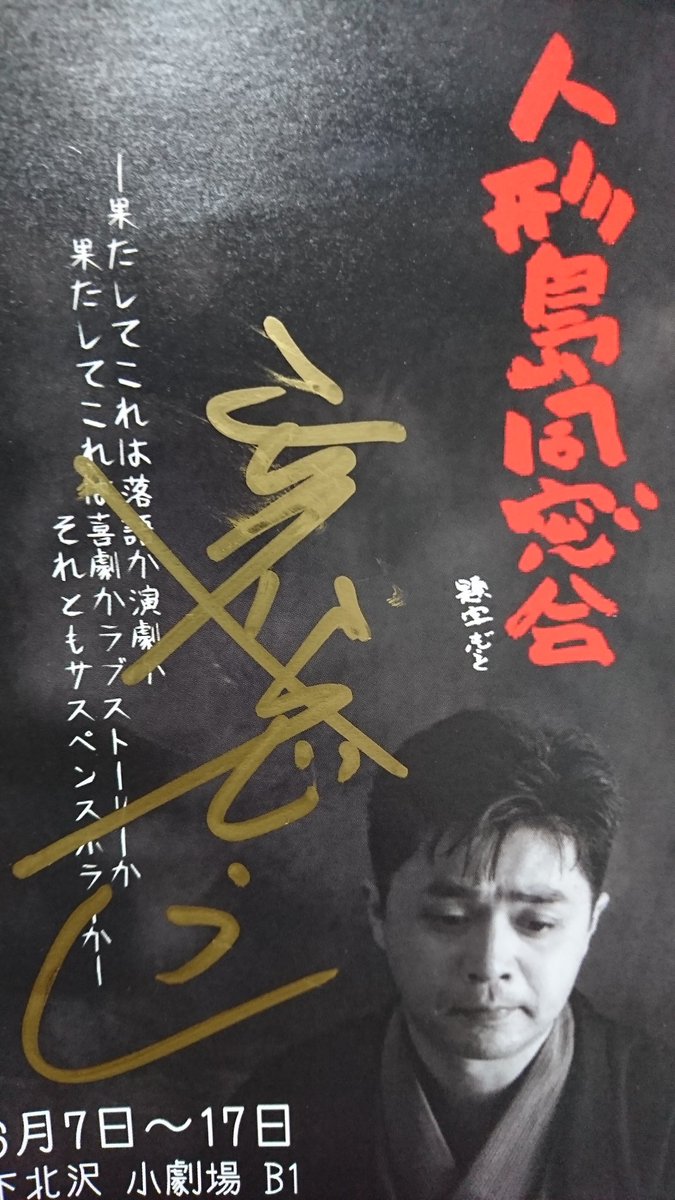 人形島同窓会
―果たしてこれは落語か演劇か
果たしてこれは喜劇かラブストーリーか
それともサスペンスホラーか―
6月7日〜17日
下北沢 小劇場 B1